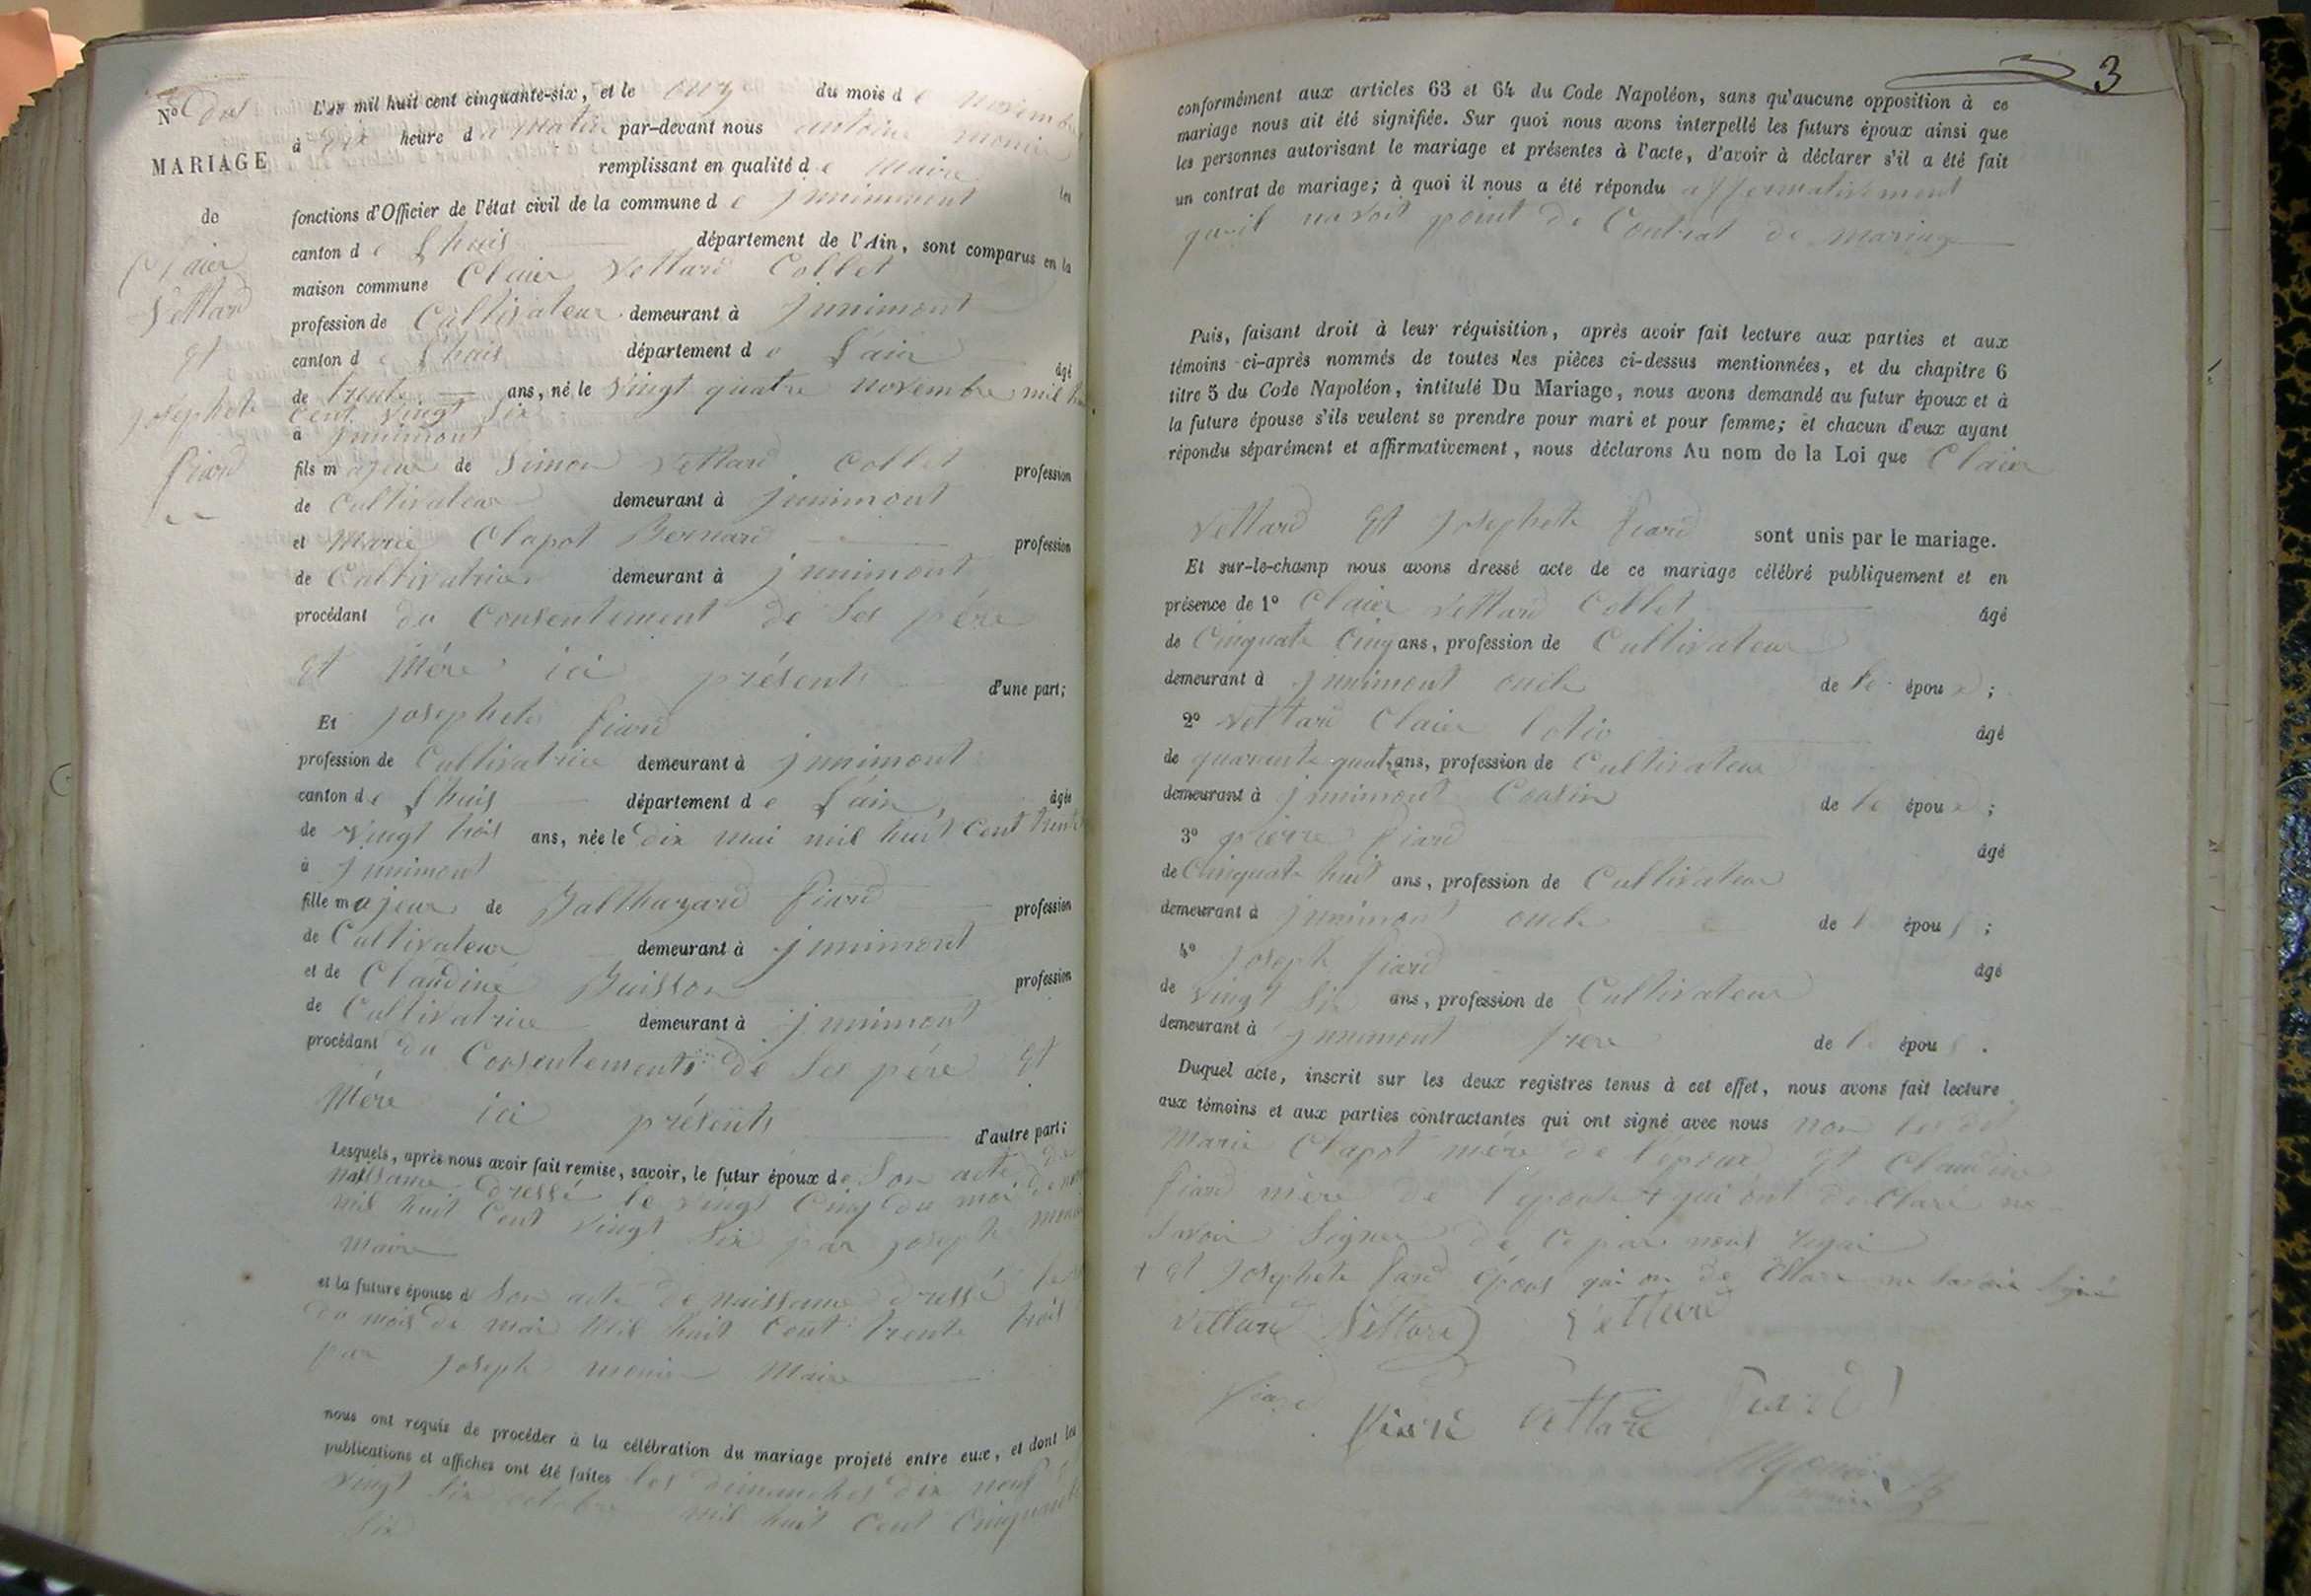 N° dus
MARIAGE
de
Claier
Vettard
et
josephete
fiard
L'an mil huit cent cinquante-six, et le onz du mois de novembre
à dix heure du matin par-devant nous antoine monier
remplissant en qualité de Maire les
fonctions d'Officier de l'état civil de la commune de junimont
canton de Lhuis département de l'Ain, sont comparus en la
maison commune Claier Vettard Collet
profession de Cultivateur demeurant à junimont
canton de Lhuis département de Lain âgé
de trente ans, né le vingt quatre novembre mil
cent vingt six
à junimont
fils majeur de Simon Vettard Collet profession
de Cultivateur demeurant à junimont
et Marie Clapot Bernard profession
de Cultivatrice demeurant à junimont
procédant du Consentement de Ses père
et Mère ici présents d'une part;
Et josephete fiard
profession de Cultivatrice demeurant à junimont
canton de Lhuis département de Lain, âgée
de vingt trois ans, née le dix mai mil huit cent trente
à junimont
fille majeure de Balthazard fiard profession
de Cultivateur demeurant à junimont
et de Claudine Buisson profession
de Cultivatrice demeurant à junimont
procédant du Consentement de Ses père et
Mère ici présents d'autre part;
Lesquels, après nous avoir fait remise, savoir, le futur époux de Son acte de
naissance dressé le vingt cinq du moi de
mil huit Cent vingt Six par joseph
Maire
et la future épouse d Son acte de naissance dressé le
du mois de mai Mil huit Cent trente trois
par joseph monier Maire
nous ont requis de procéder à la célébration du mariage projeté entre eux, et dont les
publications et affiches ont été faites les dimanches dix neuf
vingt Six octobre mil huit Cent Cinquante
Six
3
conformément aux articles 63 et 64 du Code Napoléon, sans qu'aucune opposition à ce
mariage nous ait été signifiée. Sur quoi nous avons interpellé les futurs époux ainsi que
les personnes autorisant le mariage et présentes à l'acte, d'avoir à déclarer s'il a été fait
un contrat de mariage; à quoi il nous a été répondu affermativement
qu'il navoit point de Contrat de mariage
Puis, faisant droit à leur réquisition, après avoir fait lecture aux parties et aux
témoins ci-après nommés de toutes les pièces ci-dessus mentionnées, et du chapitre 6
titre 5 du Code Napoléon, intitulé Du Mariage, nous avons demandé au futur époux et à
la future épouse s'ils veulent se prendre pour mari et pour femme; et chacun d'eux ayant
répondu séparément et affirmativement, nous déclarons Au nom de la Loi que Claier
Vettard Et josephete fiard sont unis par le mariage.
Et sur-le-champ nous avons dressé acte de ce mariage célébré publiquement et en
présence de 1° Claier Vettard Collet âgé
de Cinquate Cinq ans, profession de Cultivateur
demeurant à junimont oncle de le époux;
2° Vettard Claier âgé
de quarante quatre ans, profession de Cultivateur
demeurant à junimont Cousin de le époux;
3° pierre fiard âgé
de Cinquate huit ans, profession de Cultivateur
demeurant à junimont oncle de l épou;
4° joseph fiard âgé
de vingt Six ans, profession de Cultivateur
demeurant à junimont frere de l épou.
Duquel acte, inscrit sur les deux registres tenus à cet effet, nous avons fait lecture
aux témoins et aux parties contractantes qui ont signé avec nous non
Marie Clapot mère de l'époux et Claudine
fiard mère de l'épouse + qui ont de Claré ne
Savoir Signer de Ce par nous
+ et josephete fiard qui on de Clare ne Savoir Signé
Vettard Vettard Vettard
fiard
fiard Vettard fiard
Monier
maire